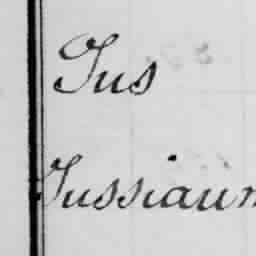 Jus
Jussiaum